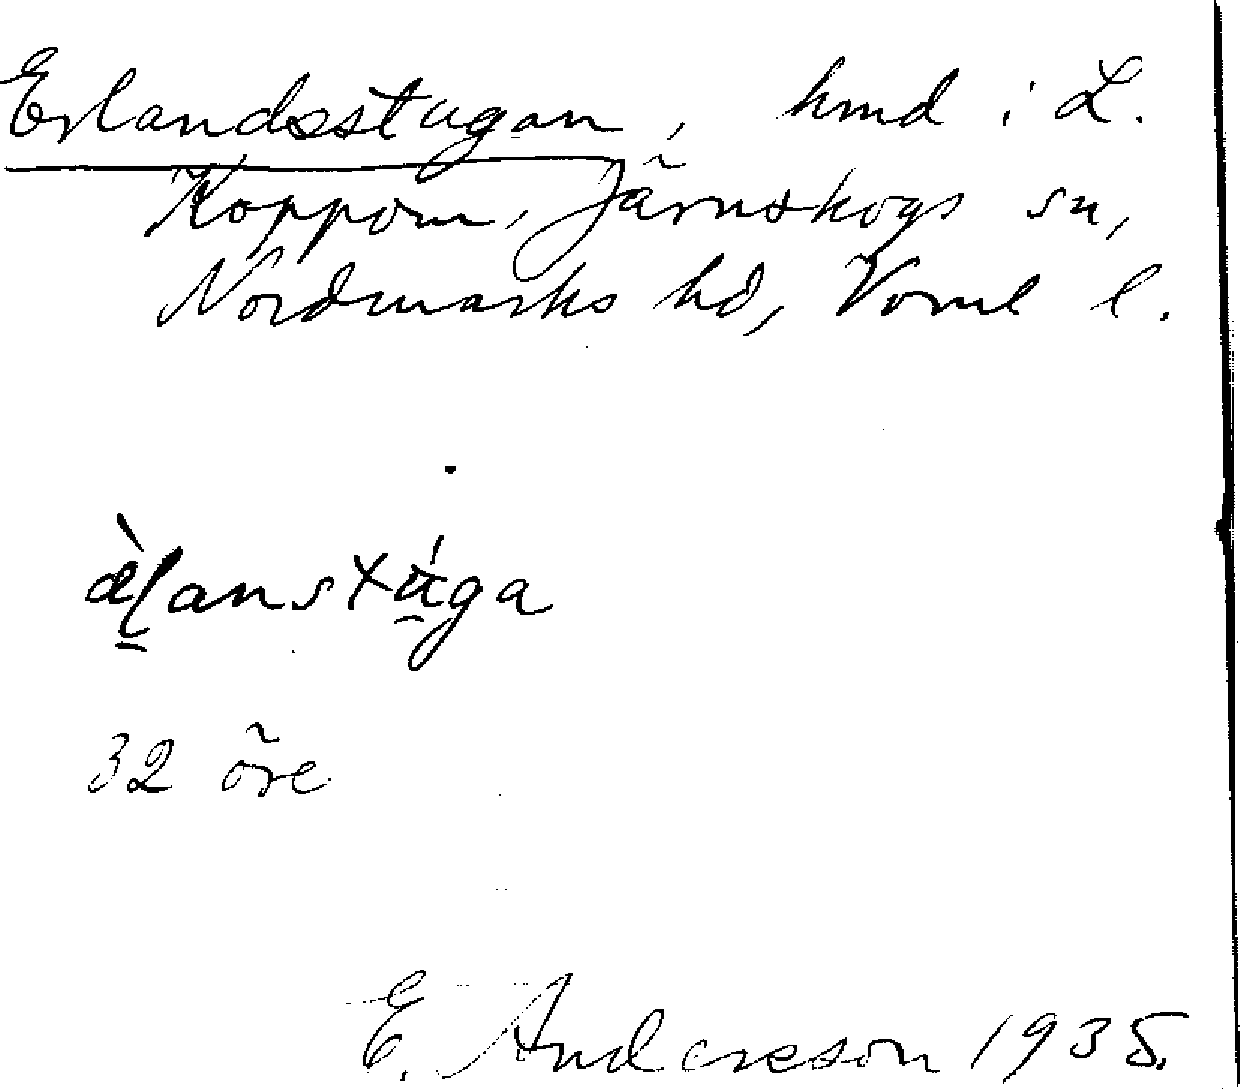 Erlandsstugan, hmd i L.
Koppom, Järnskogs sn,
Nordmarks hd, Vrml l.
æ̀ḻanstúga
32 öre
E. Andersson 1935.